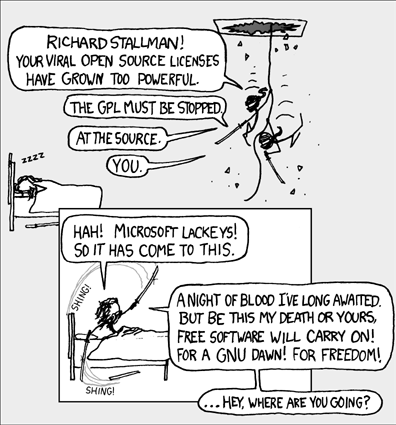 RICHARD STALLMAN!
YOUR VIRAL OPEN SOURCE LICENSES
HAVE GROWN TOO POWERFUL.
THE GPL MUST BE STOPPED.
AT THE SOURCE.
YOU.
ZZZZ
HAH! MICROSOFT LACKEYS!
SO IT HAS COME TO THIS.
SHING!
A NIGHT OF BLOOD I'VE LONG AWAITED.
BUT BE THIS MY DEATH OR YOURS,
FREE SOFTWARE WILL CARRY ON!
FOR A GNU DAWN! FOR FREEDOM!
SHING!
...HEY, WHERE ARE YOU GOING?